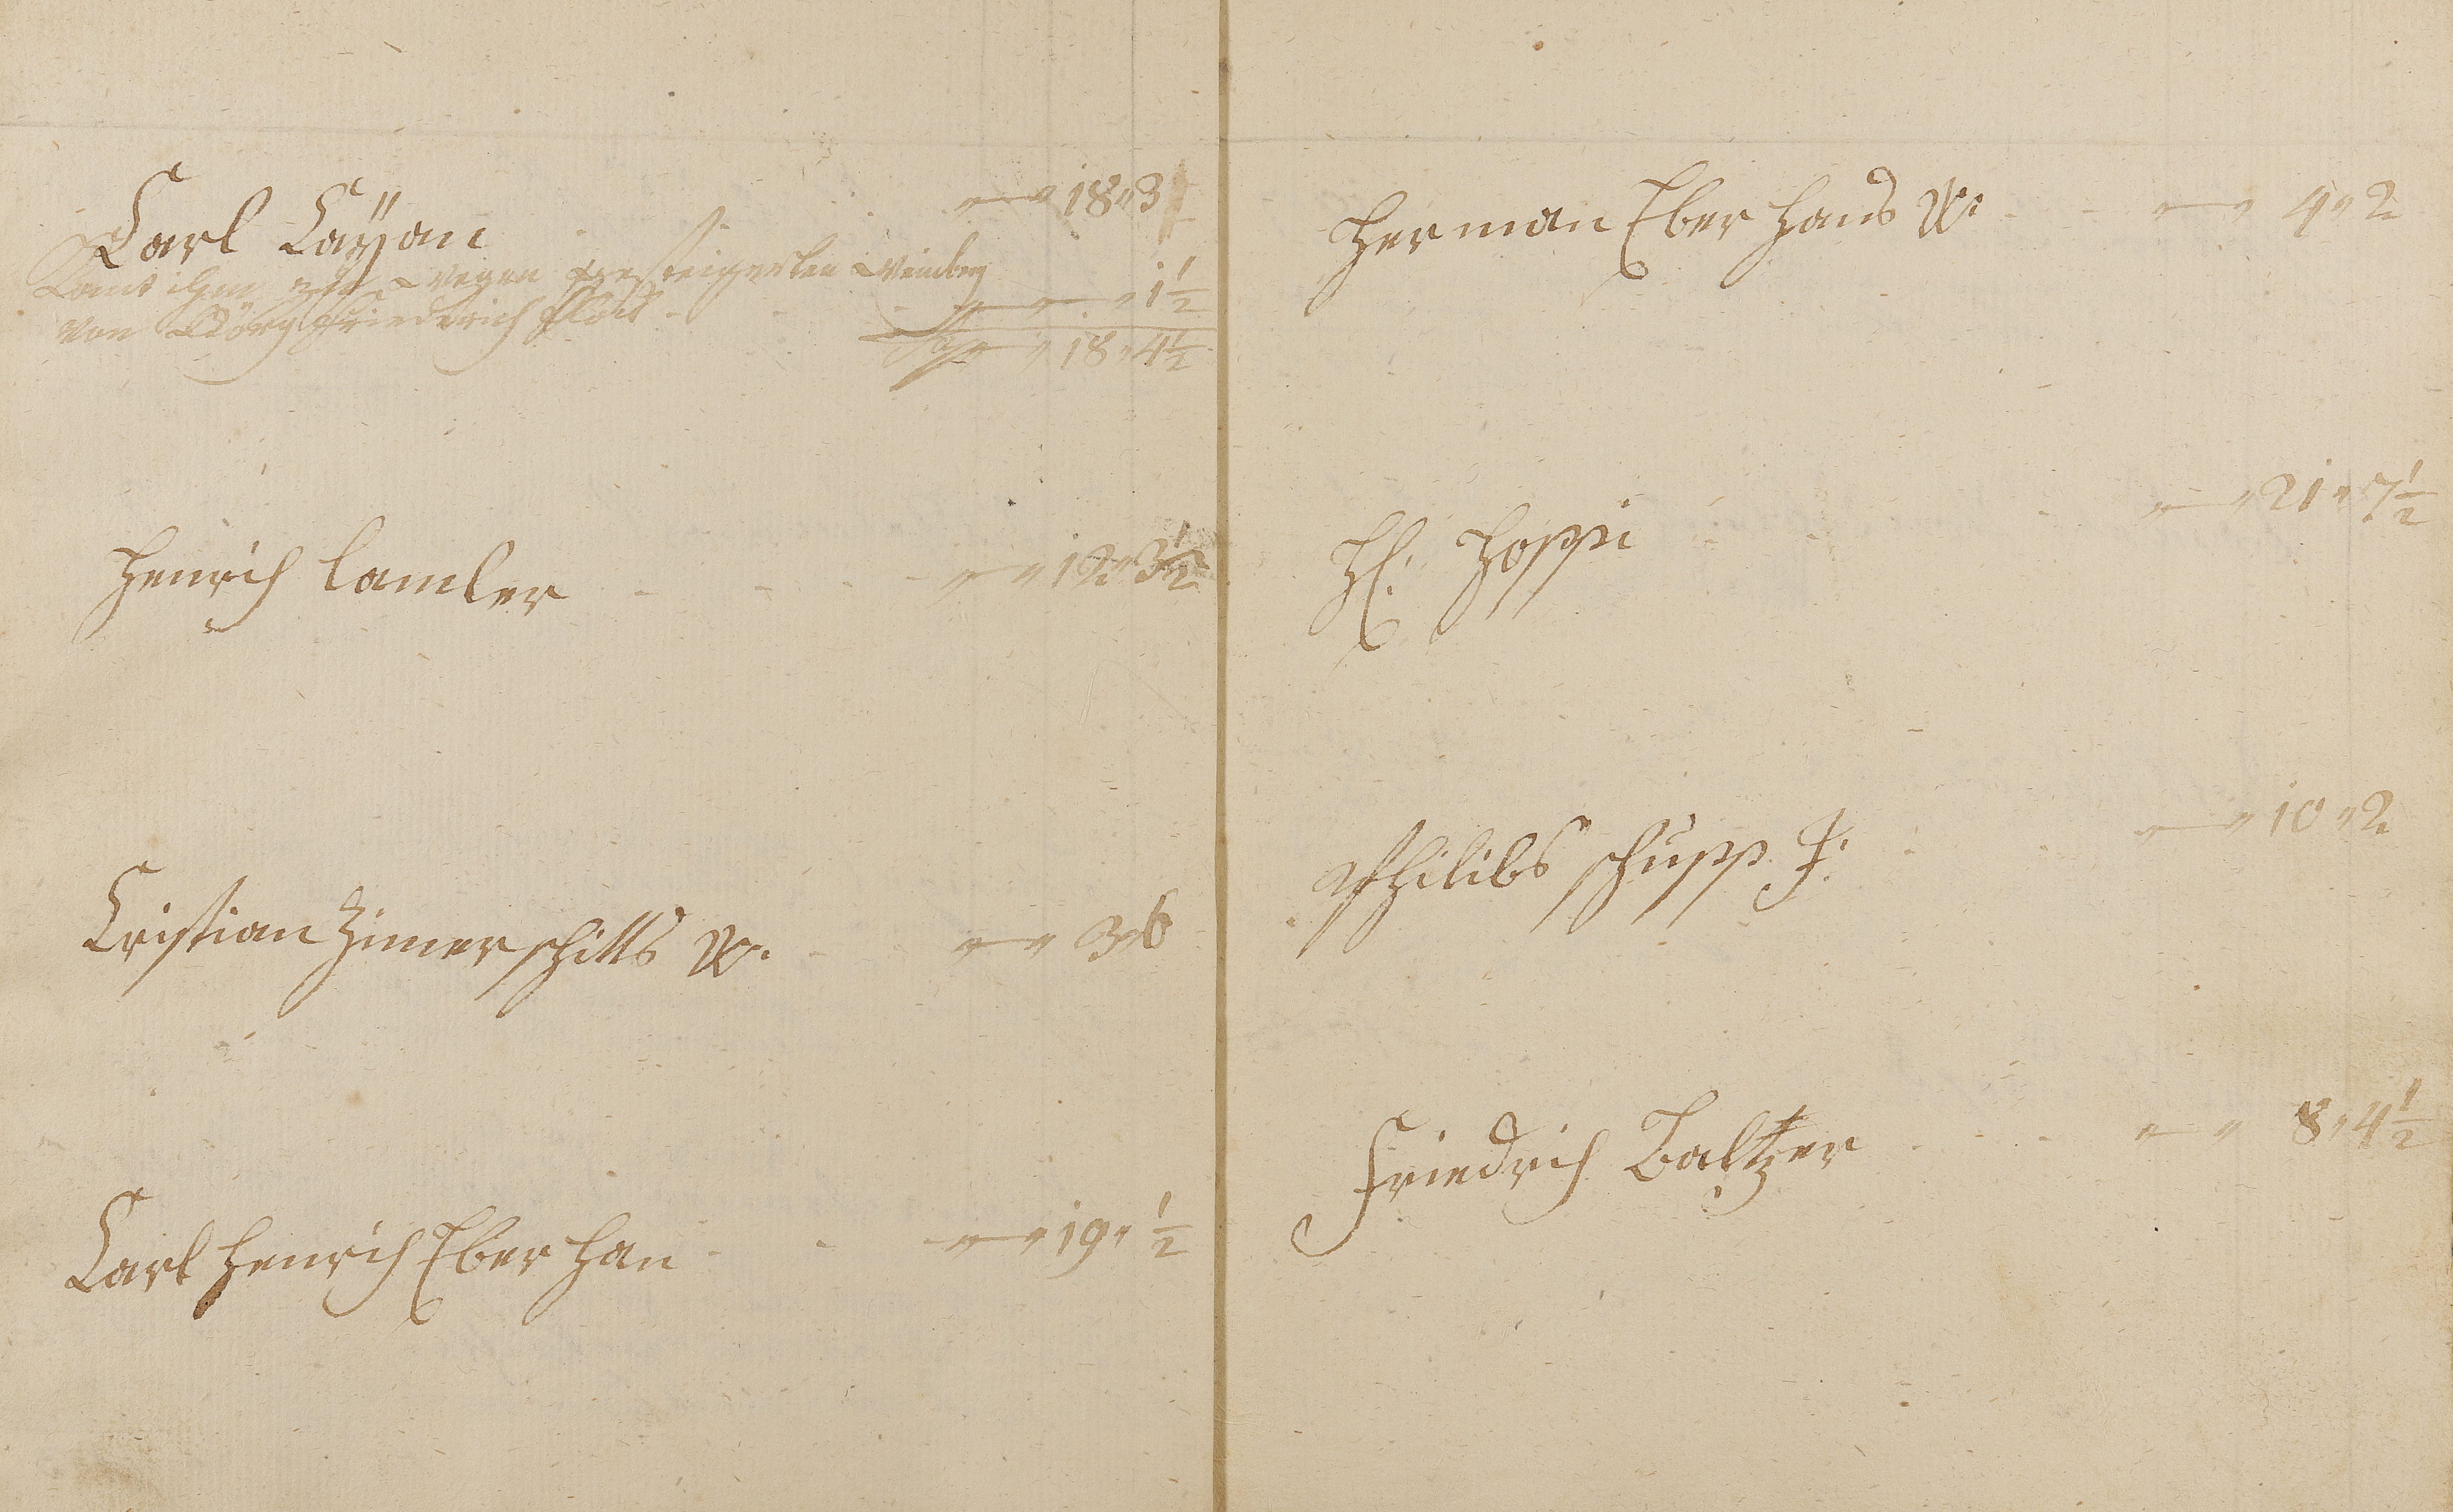 Carl Caÿan - - - „-„ 18„3
Komt ihm zu wegen ersteigerten Weinberg
von Görg Friederich - - „-„-„ 1½
„ 18„4½
Henrich lamler - - - - „-„ 12„3½
Cristian Zimerschitts W. - - „-„ 3„6
Carl Henrich Eberhan - - - „-„ 19„½
Herman Eberhans W: - - „-„ 4„2
H. Hoppi - - - „-„ 21„7½
Philibs schupp J: - - „-„ 10„2
Friedrich Baltzer - - - „-„ 8„4½